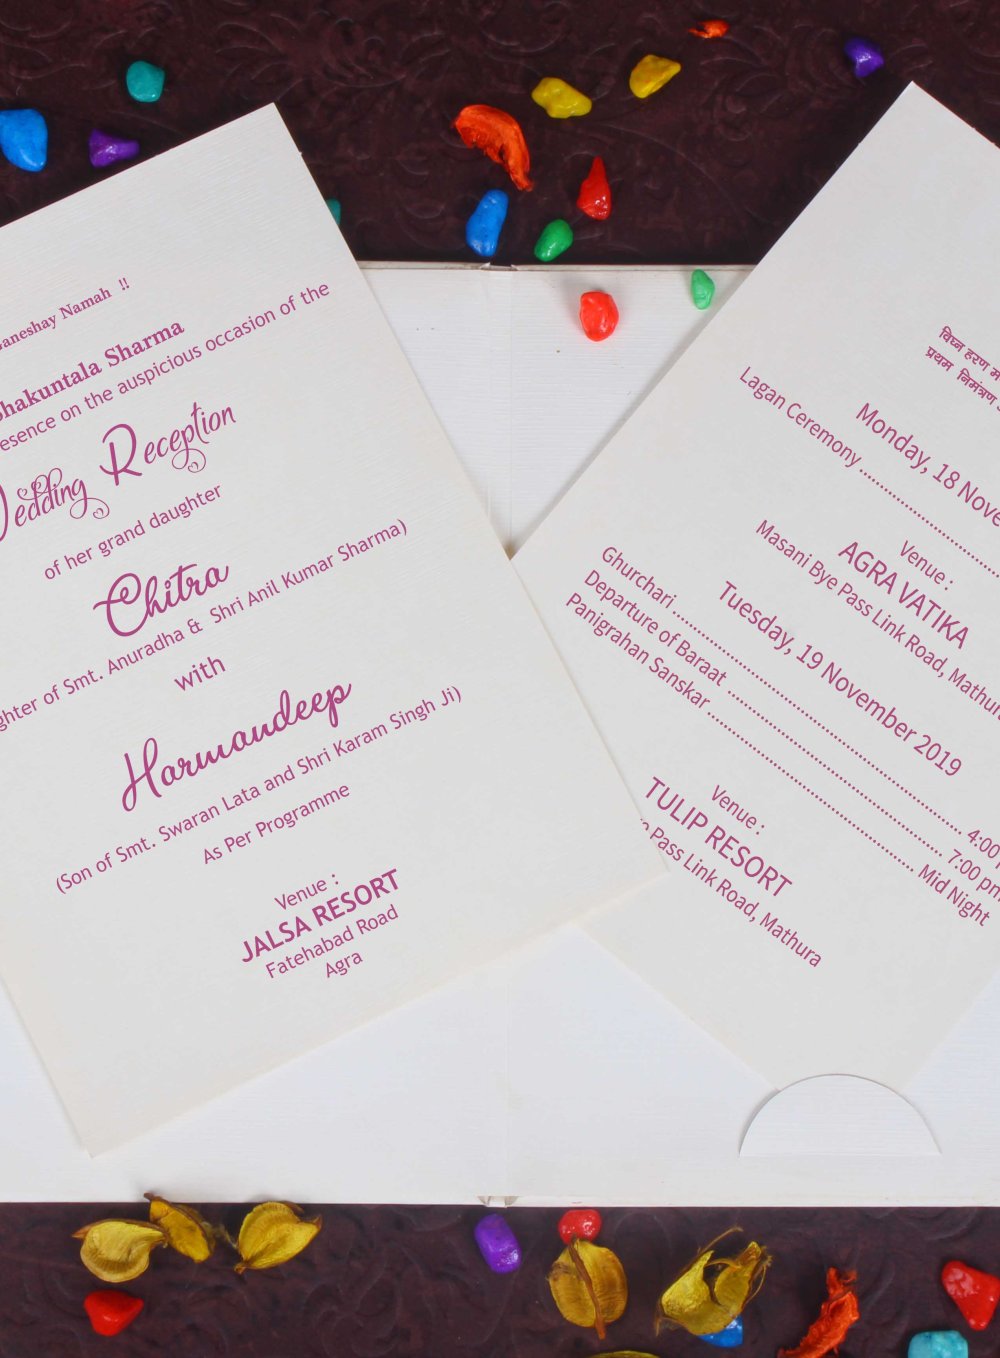 Namah !!
Shakuntala Sharma
on the auspicious occasion of the
Wedding Reception
of her grand daughter
Chitra
of Smt. Anuradha & Shri Anil Kumar Sharma)
with
Harmandeep
(Son of Smt. Swaran Lata and Shri Karam Singh Ji)
As Per Programme
Venue :
JALSA RESORT
Fatehabad Road
Agra
विघ्न हरण
प्रथम निमंत्रण
Monday, 18
Lagan Ceremony ........................
Venue :
AGRA VATIKA
Masani Bye Pass Link Road,
Tuesday, 19 November 2019
Ghurchari ........................ 4:00
Departure of Baraat ........................ 7:00 pm
Panigrahan Sanskar ........................ Mid Night
Venue :
TULIP RESORT
Pass Link Road, Mathura